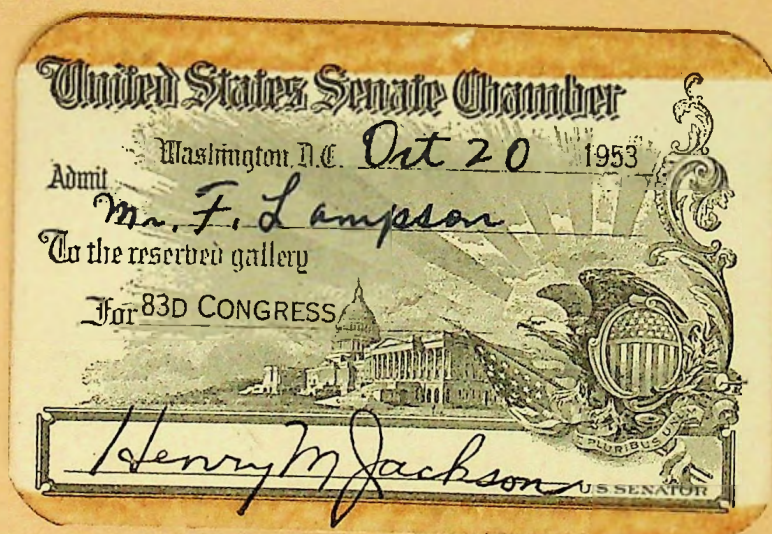 United States Senate Chamber
Washington, D.C. Oct 20 1953
Admit
Mr. F. Lampson
To the reserved gallery
For 83D CONGRESS
E PLURIBUS UNUM
Henry M Jackson U.S. SENATOR